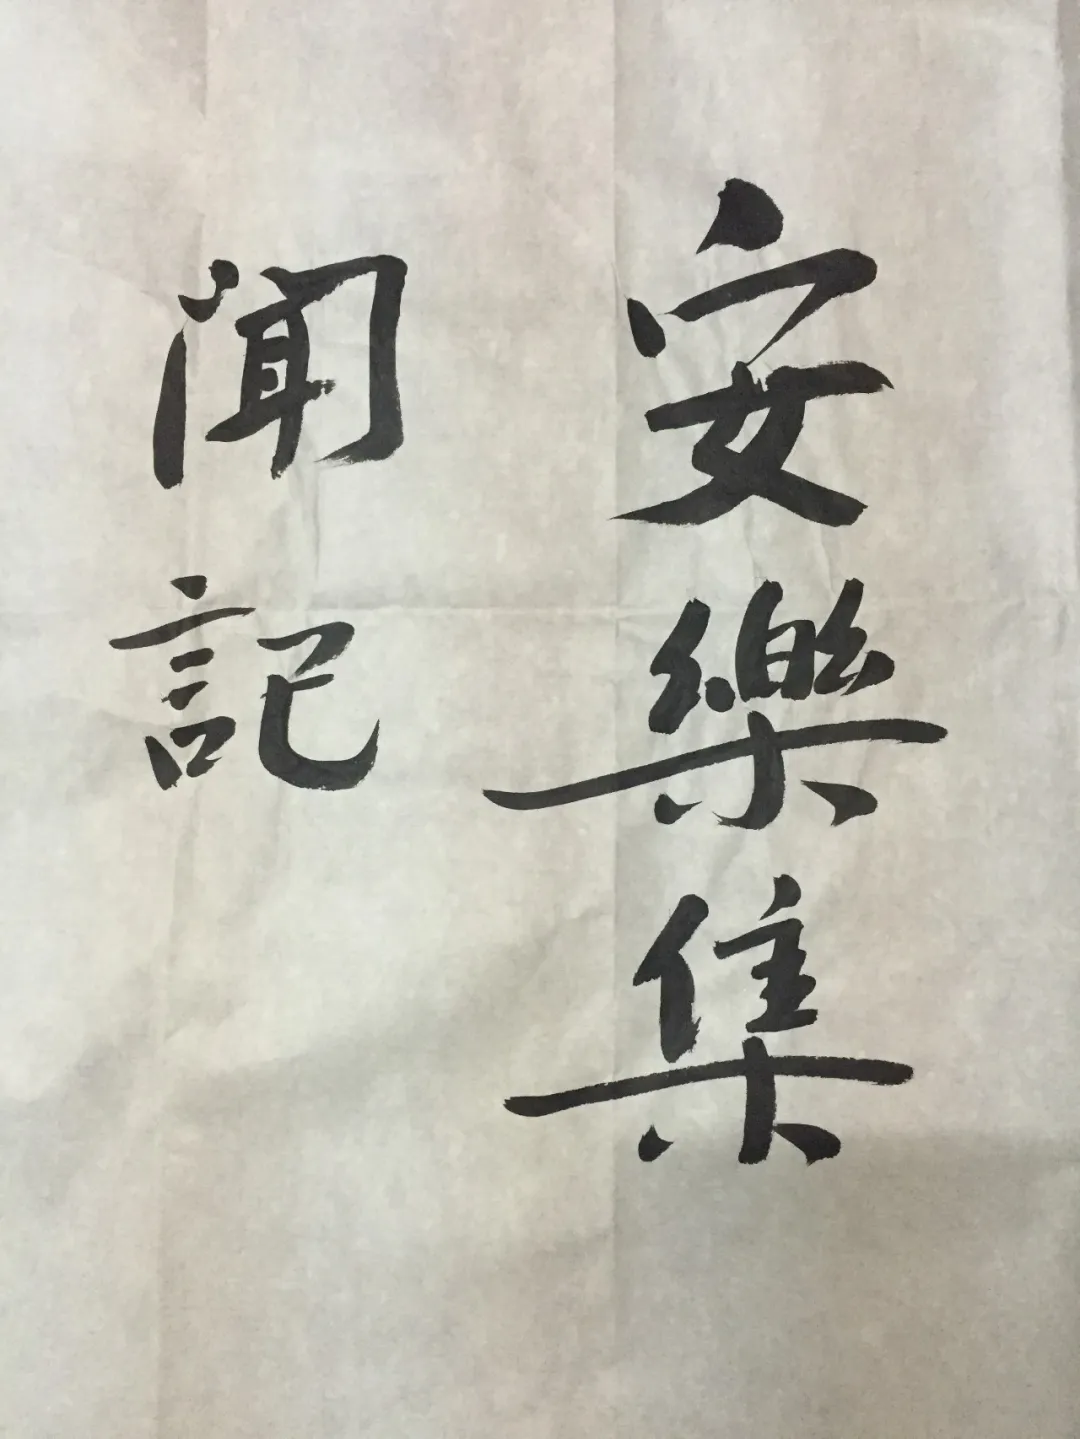 安樂集
聞記